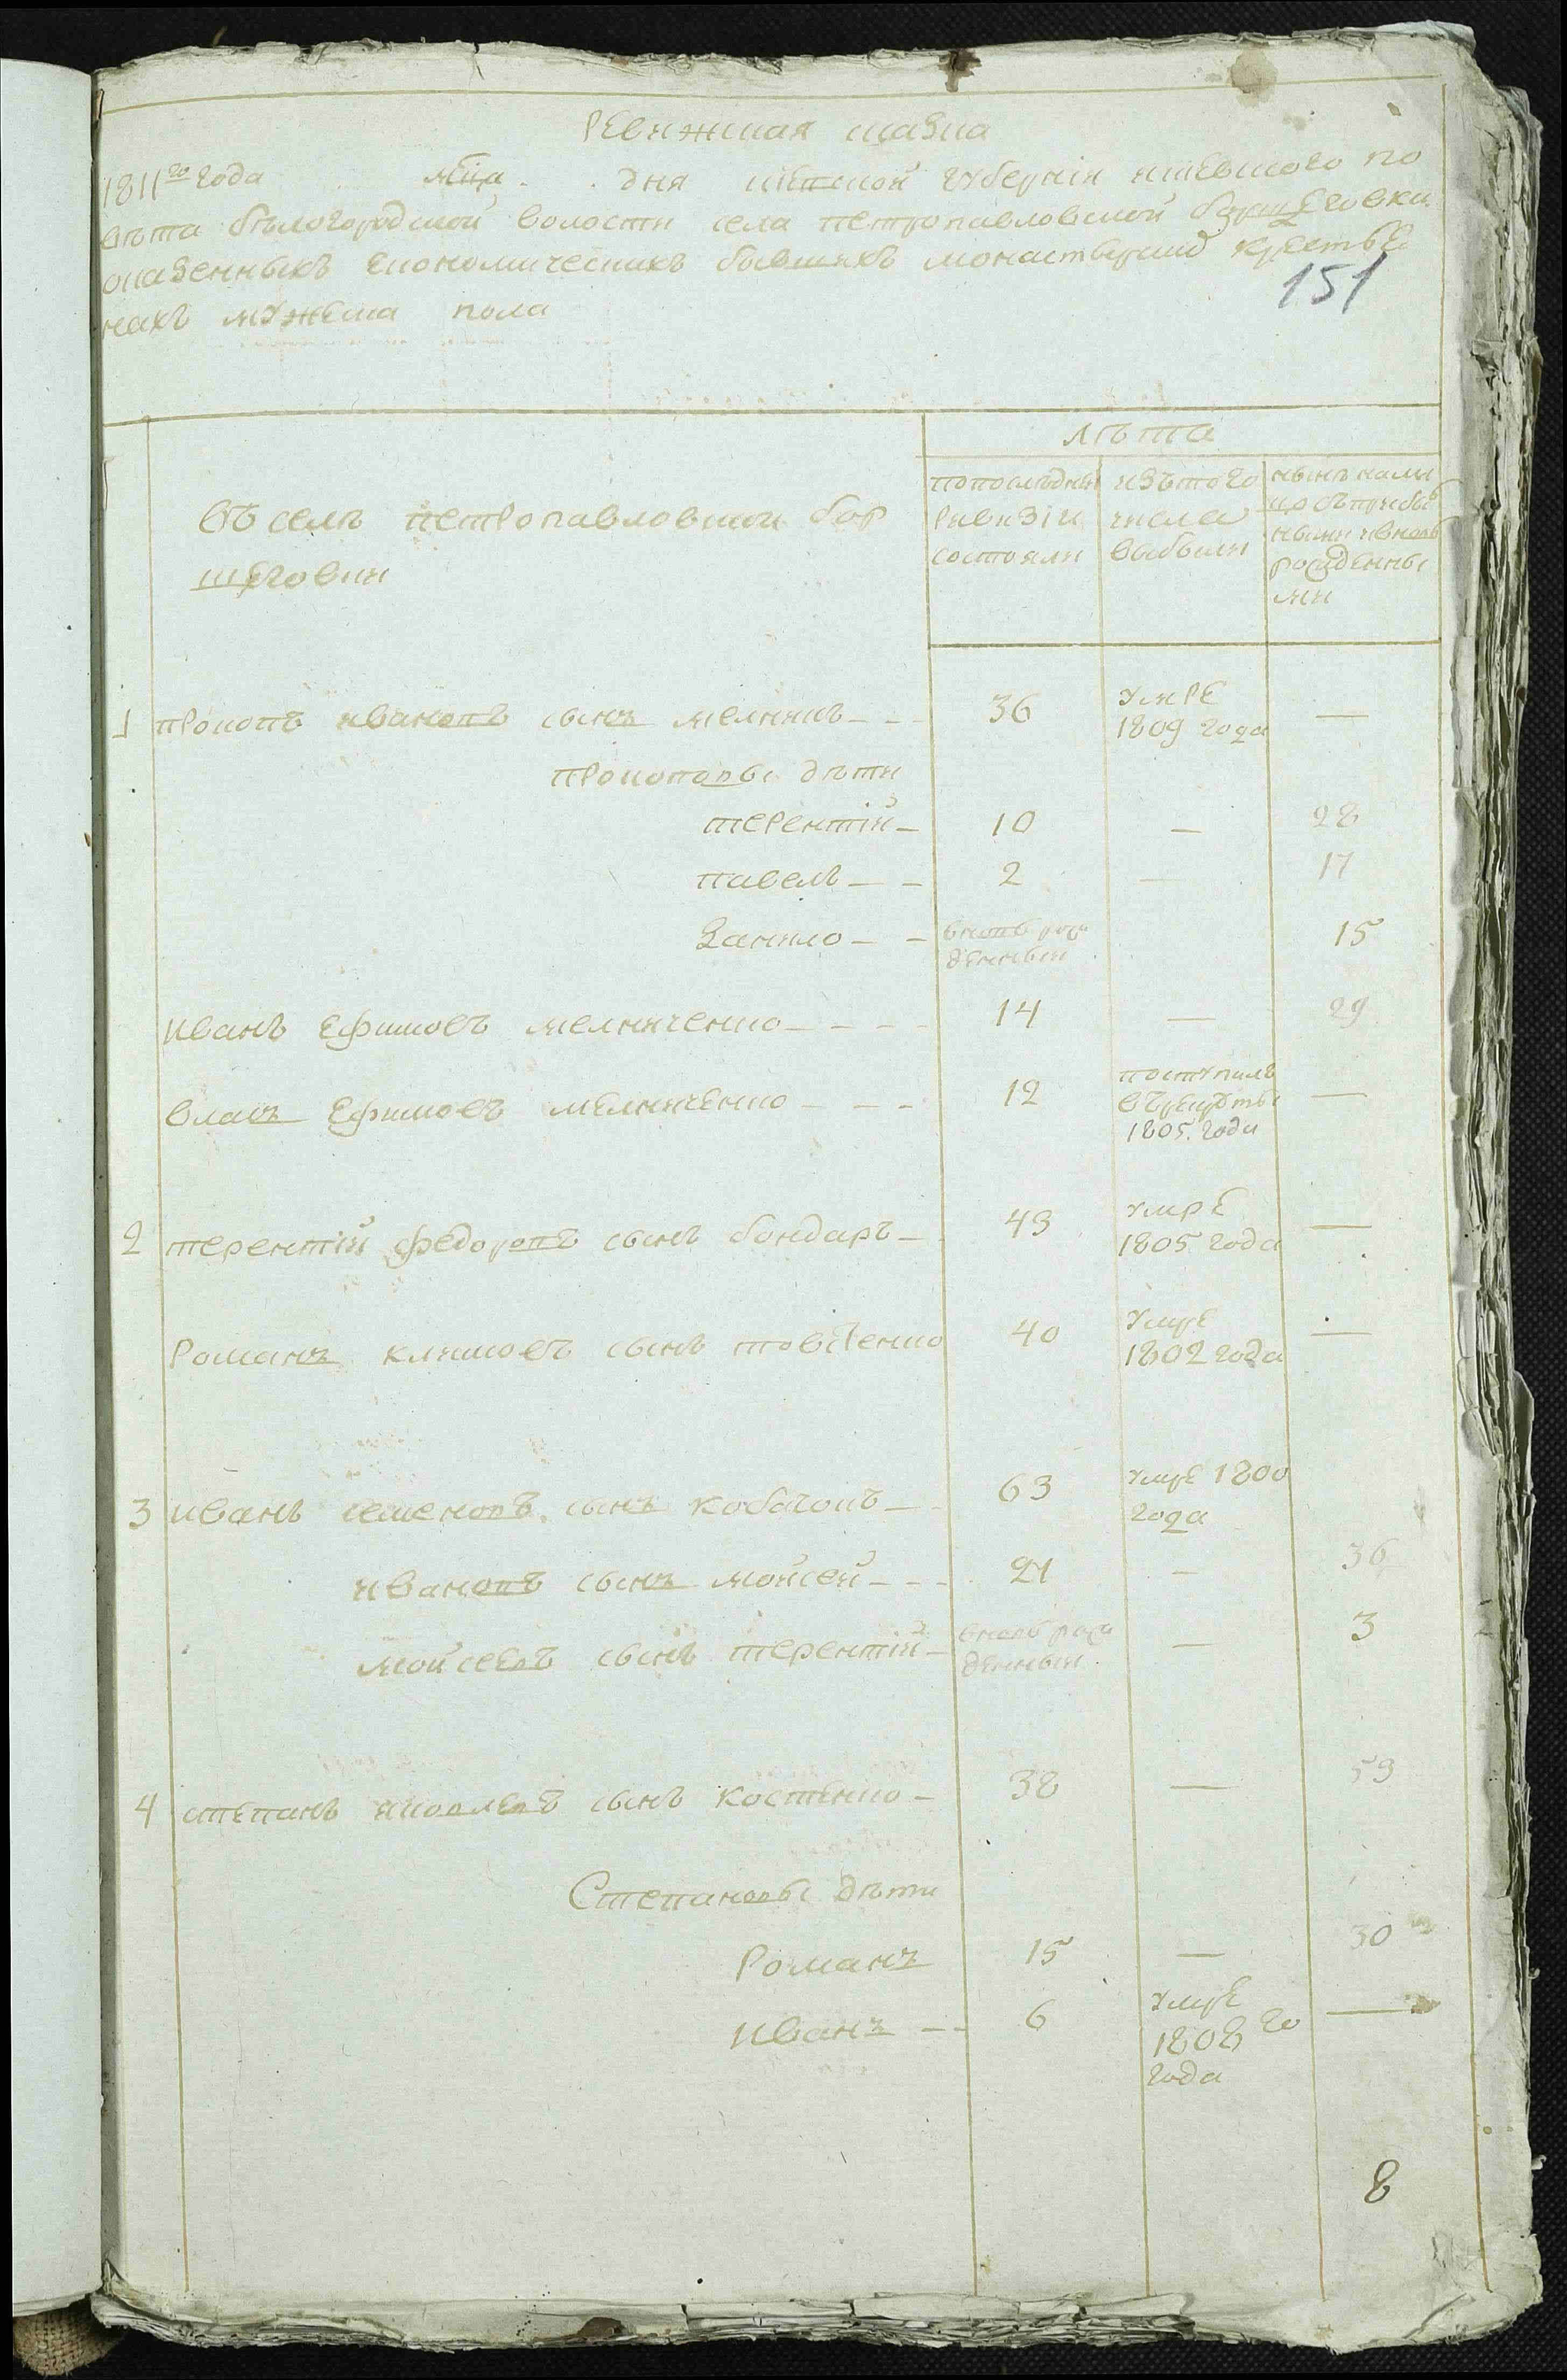 Ревижская сказка
1811го года мца дня киевской губернии киевского по
вѣта бѣлогородской волости села петропавловской борщеговки
оказенныхъ економическихъ бывшихъ монастырскихъ крестья
нахъ мужеска пола
151
лѣта
въ селѣ петропавловской бор
щеговки
попослѣдней ревизіи состояли
изътого числа выбыли
нынѣ налицо съ прибылыми и вновь рожденными
1 прокопъ ивановъ сынъ мелникъ 36 умре 1809 года —
прокоповы дѣти
терентій 10 — 28
павелъ 2 — 17
данило вновь рожденный 15
иванъ ефимовъ мелниченко 14 — 29
власъ ефимовъ мелниченко 12 поступилъ въ рекруты 1805 года —
2 терентій федоровъ сынъ бондаръ 43 умре 1805 года —
романъ климовъ сынъ 40 умре 1802 года —
3 иванъ семеновъ сынъ кобачокъ 63 умре 1800 года
ивановъ сынъ мойсей 21 — 36
мойсеевъ сынъ терентій вновь рожденный — 3
4 степанъ яковлевъ сынъ костенко 38 — 53
Степановы дѣти
романъ 15 — 30
иванъ 6 умре 1808го года —
8